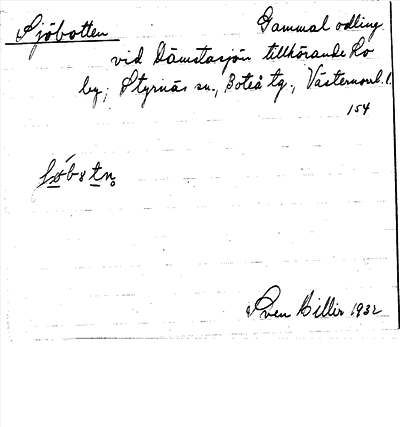 Sjöbotten Gammal odling
vid Dämstasjön tillhörande Ro
by, Styrnäs sn., Boteå tg., Västernorrl. l.
154
Sven Billir 1932